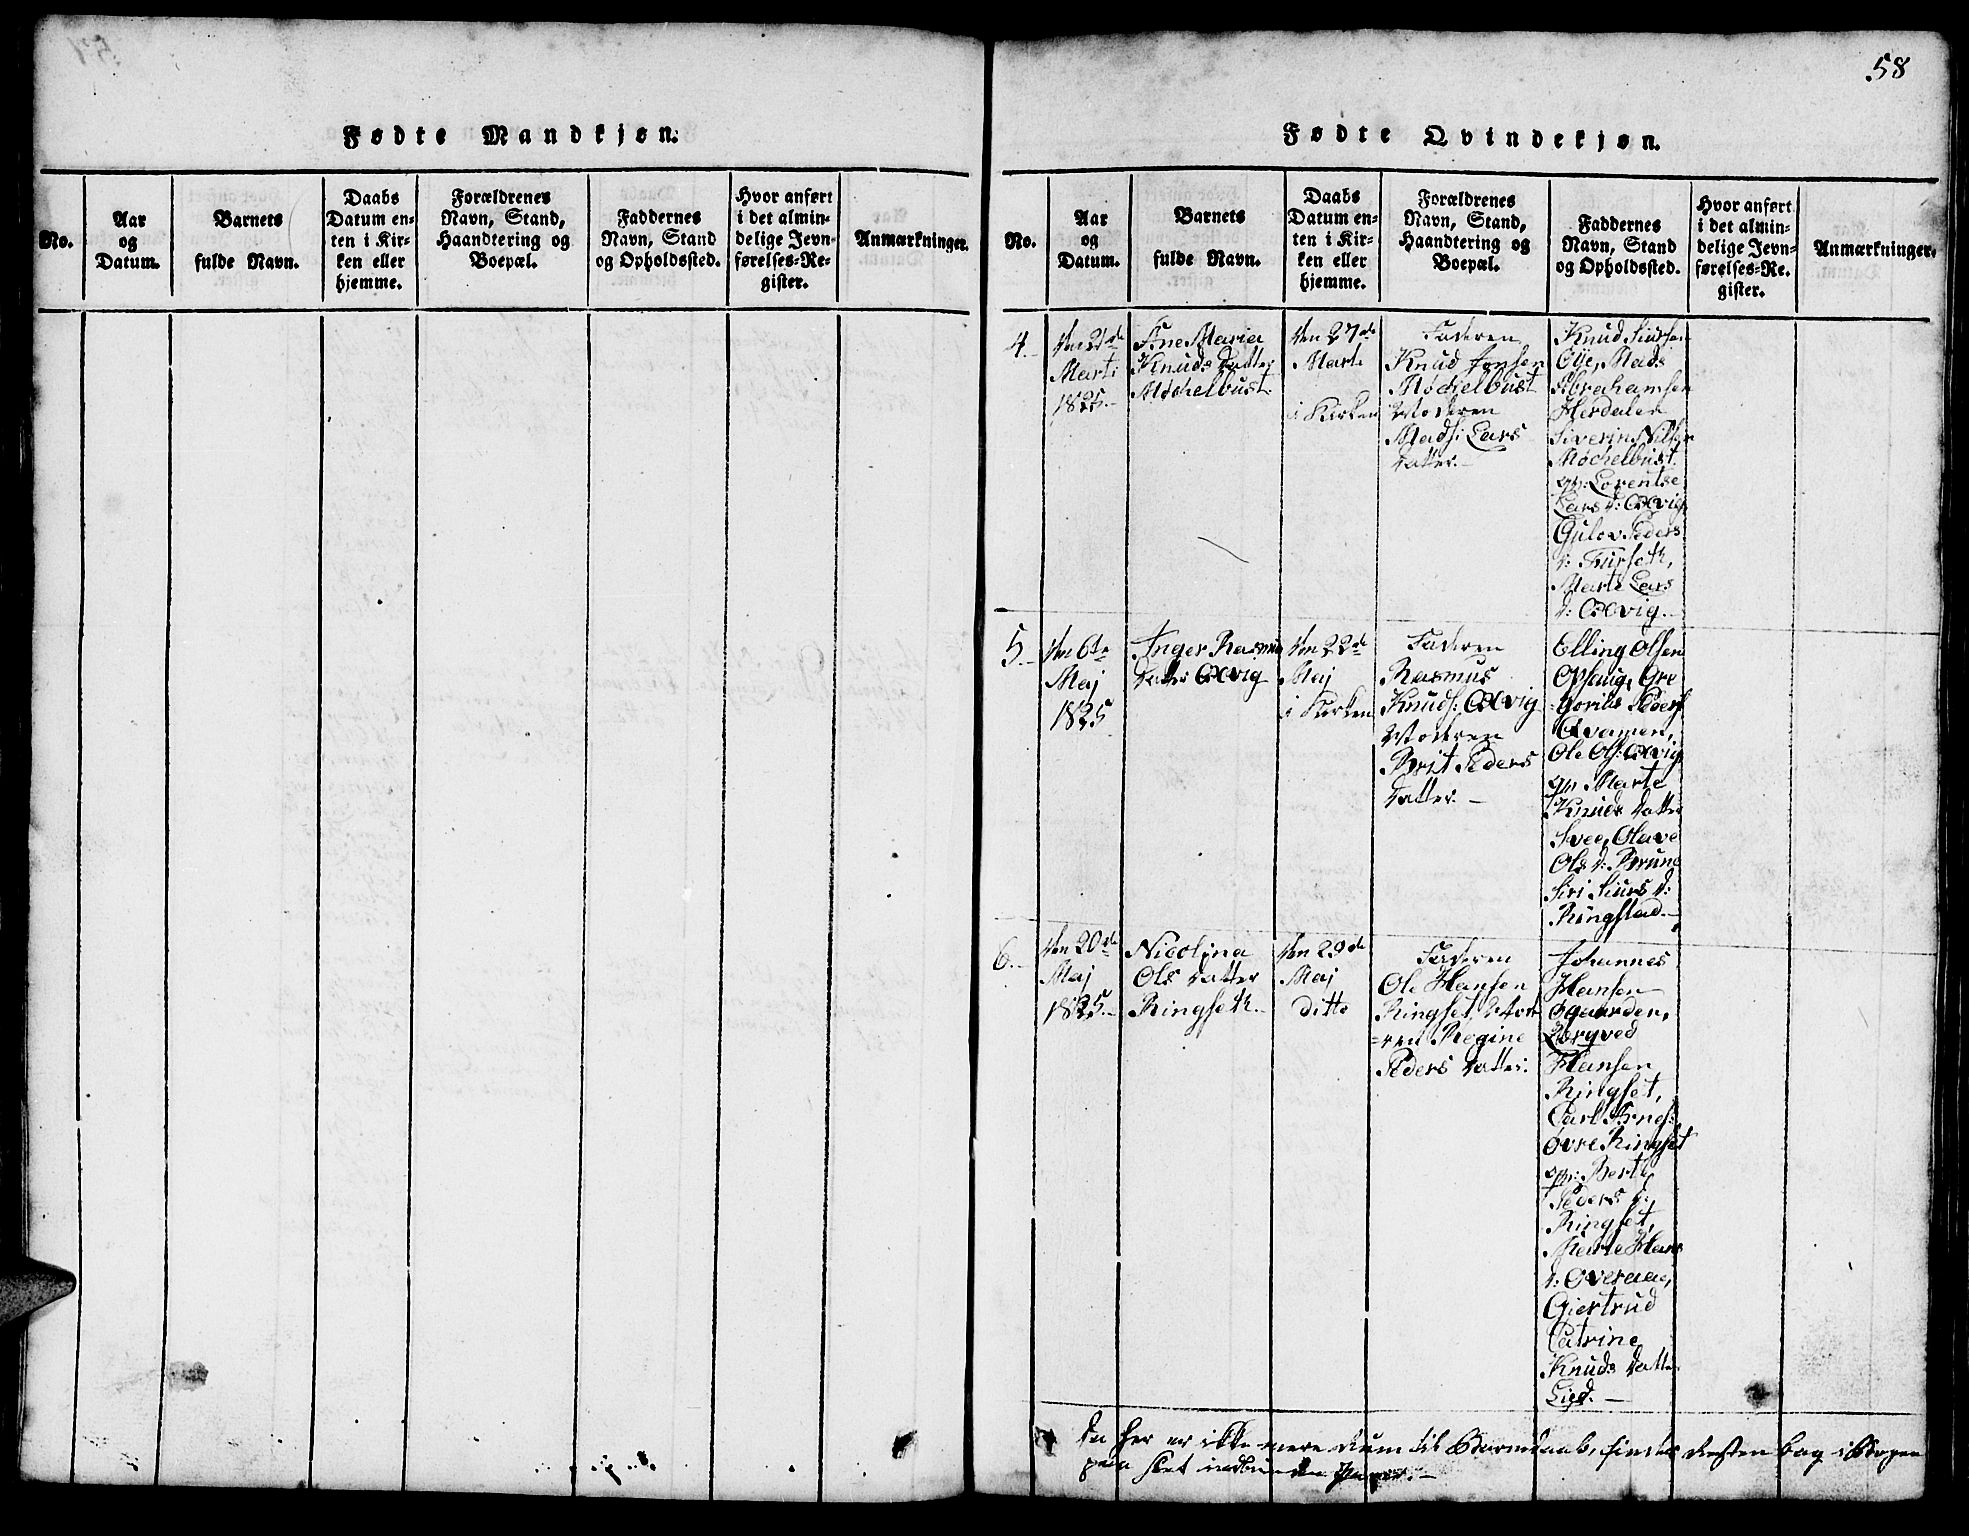 58
Fødte Mandkjøn.
No.
Aar
og
Datum.
Barnets
fulde Navn.
Daabs
Datum en-
ten i Kir-
ken eller
hjemme.
Forældrenes
Navn, Stand,
Haandtering og
Boepæl.
Faddernes
Navn, Stand
og Opholdssted.
Hvor anført
i det almin-
delige Jevn-
førelses-Re-
gister.
Anmærkninger.
Fødte Qvindekjøn.
No.
Aar
og
Datum.
Barnets
fulde Navn.
Daabs
Datum en-
ten i Kir-
ken eller
hjemme.
Forældrenes
Navn, Stand,
Haandtering og
Boepæl.
Faddernes
Navn, Stand
og Opholdssted.
Hvor anført
i det almin-
delige Jevn-
førelses-Re-
gister.
Anmærkninger.
4.
Marti
1825.
Ane Maria
Knuds Datter
Møchelbust
den 27de
Marti
i Kirken
Faderen
Knud Jensen
Møchelbust
Moderen
Mads: Lars
Datter.
Knud Siursen
Eye, Mads
Abrahamsen
Herdalen
Siverin Nilsen
Møchelbust
qv: Lorentse
Lars d: Ølvig,
Gulov Peders
d: Furseth,
Marte Lars
d: Ølvig.
5.
den 6te
Maj
1825
Inger Rasmus
Datter Ølvig
den 22de
Maj
i Kirken
Faderen
Rasmus
Knuds: Ølvig
Moderen
Brit Peders
Datter.
Elling Olsen
Opsaug, Gre
gorius Peders
Qvamen,
Ole Ols: Ølvig
qv: Marte
Knuds Datter
Svee, Olave
Ols d: Brune
Siri Siurs d:
Ringstad.
6.
den 20de
Maj
1825.
Nicolina
Ols Datter
Ringseth.
den 29de
Maj
ditto
Faderen
Ole Hansen
Ringset, Mode
=ren Regine
Peders Datter.
Johannes
Hansen
Øgaarden,
Hansen
Ringset,
Carl Arnes:
Øvre Ringset
qv: Berte
Peders d:
Ringset,
Marte Hans
d: Overaae,
Giertrud
Catrine
Knuds Datter
Lied.
Da her er ikke mere Rum til Barnedaab, findes Resten bag i Bogen
paa slet indbunden Papir.